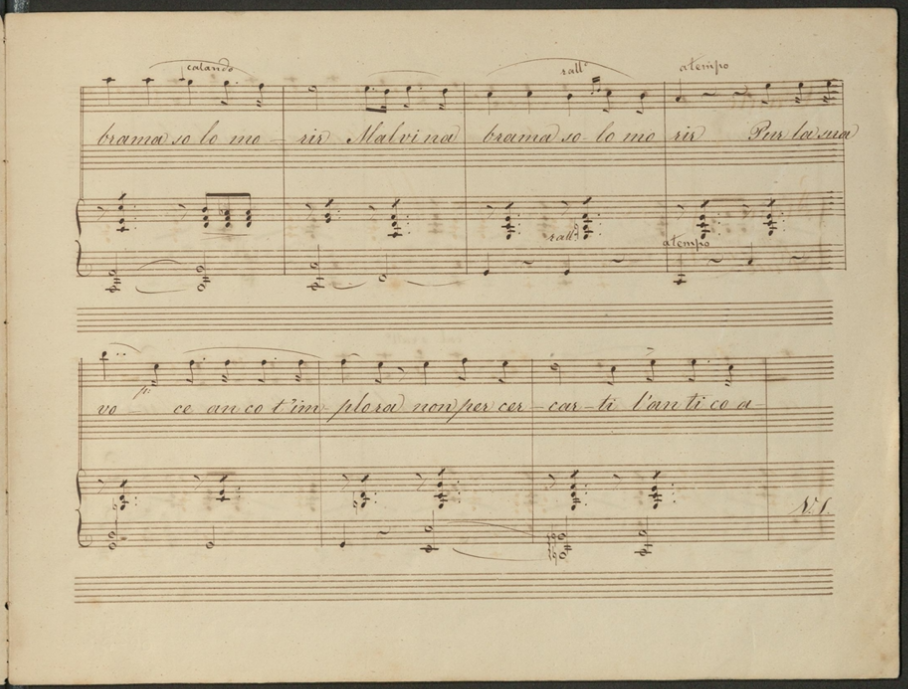 calando rall° a tempo
brama so lo mo - rir Malvi na brama so lo mo rir Pur la sua
rall°
a tempo
p:
vo ce an co t'im - plora non per cer - car - ti l'an ti co a -
N. 1.